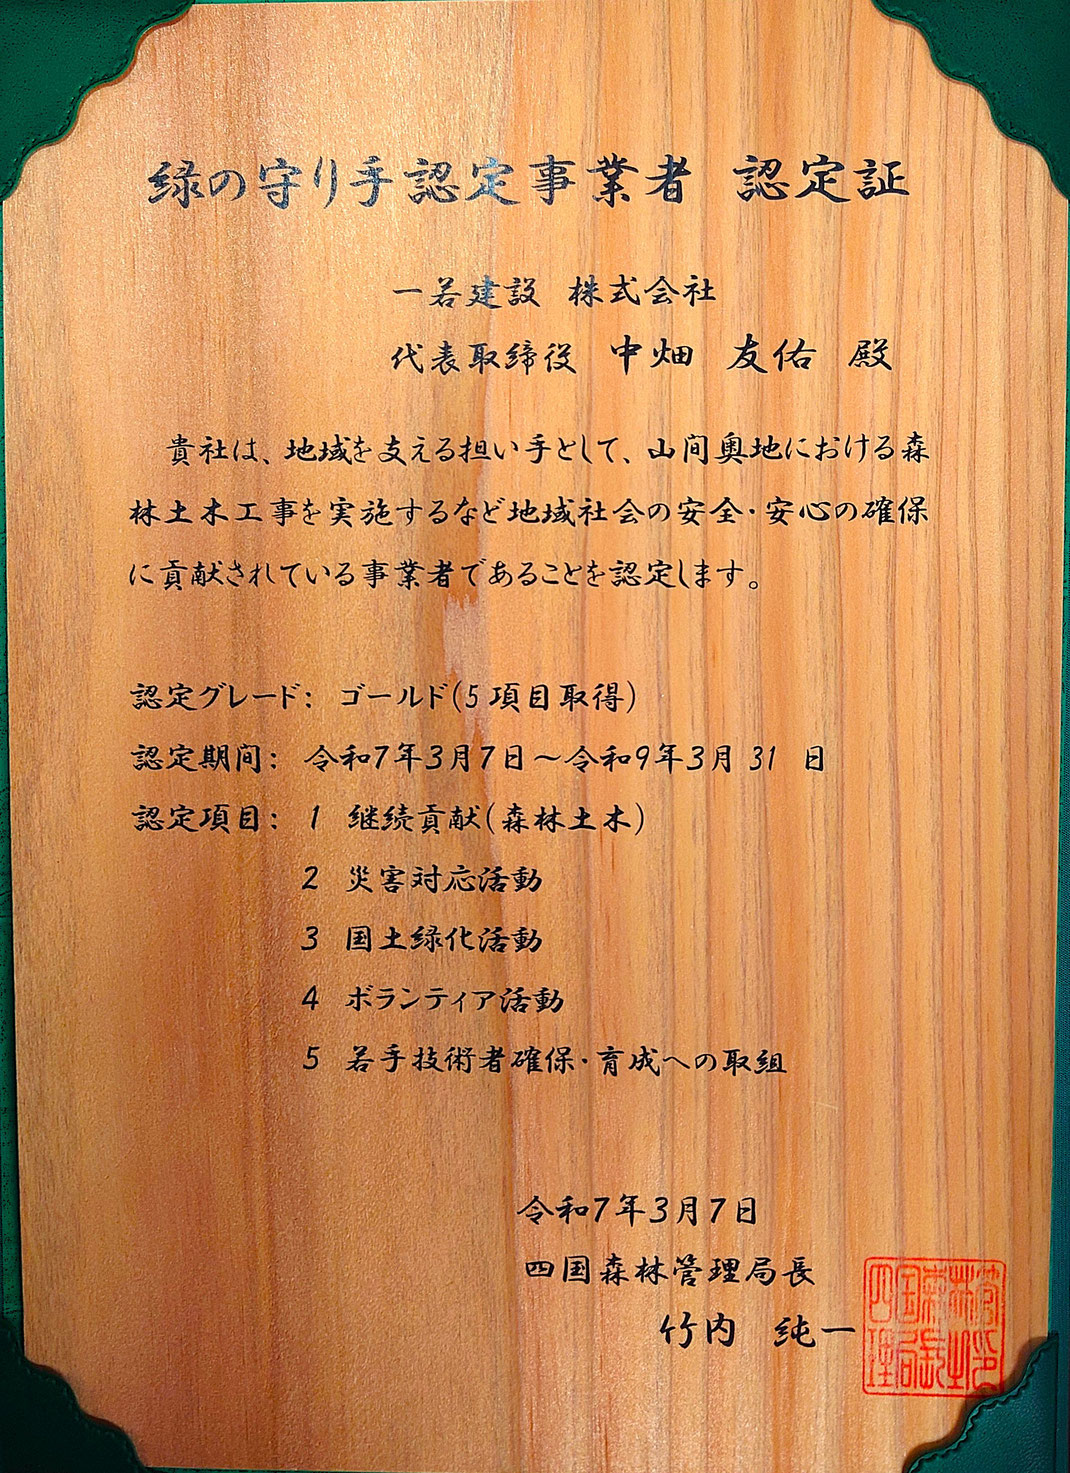 緑の守り手認定事業者 認定証
一若建設 株式会社
代表取締役 中畑 友佑 殿
貴社は、地域を支える担い手として、山間奥地における森
林土木工事を実施するなど地域社会の安全・安心の確保
に貢献されている事業者であることを認定します。
認定グレード： ゴールド(5項目取得)
認定期間： 令和7年3月7日～令和9年3月 31 日
認定項目： 1 継続貢献(森林土木)
2 災害対応活動
3 国土緑化活動
4 ボランティア活動
5 若手技術者確保・育成への取組
令和7年3月7日
四国森林管理局長
竹内 純一